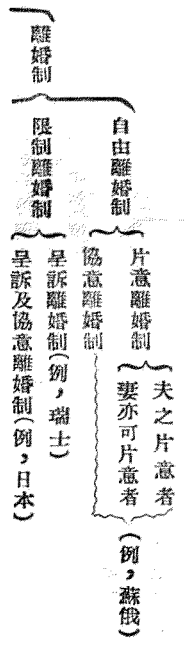 離婚制
自由離婚制
片意離婚制
夫之片意者
妻亦可片意者
協意離婚制
(例,蘇俄)
限制離婚制
呈訴離婚制(例,瑞士)
呈訴及協意離婚制(例,日本)